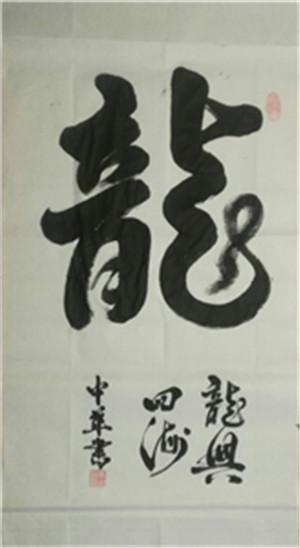 龍
龍興
四海
中華書